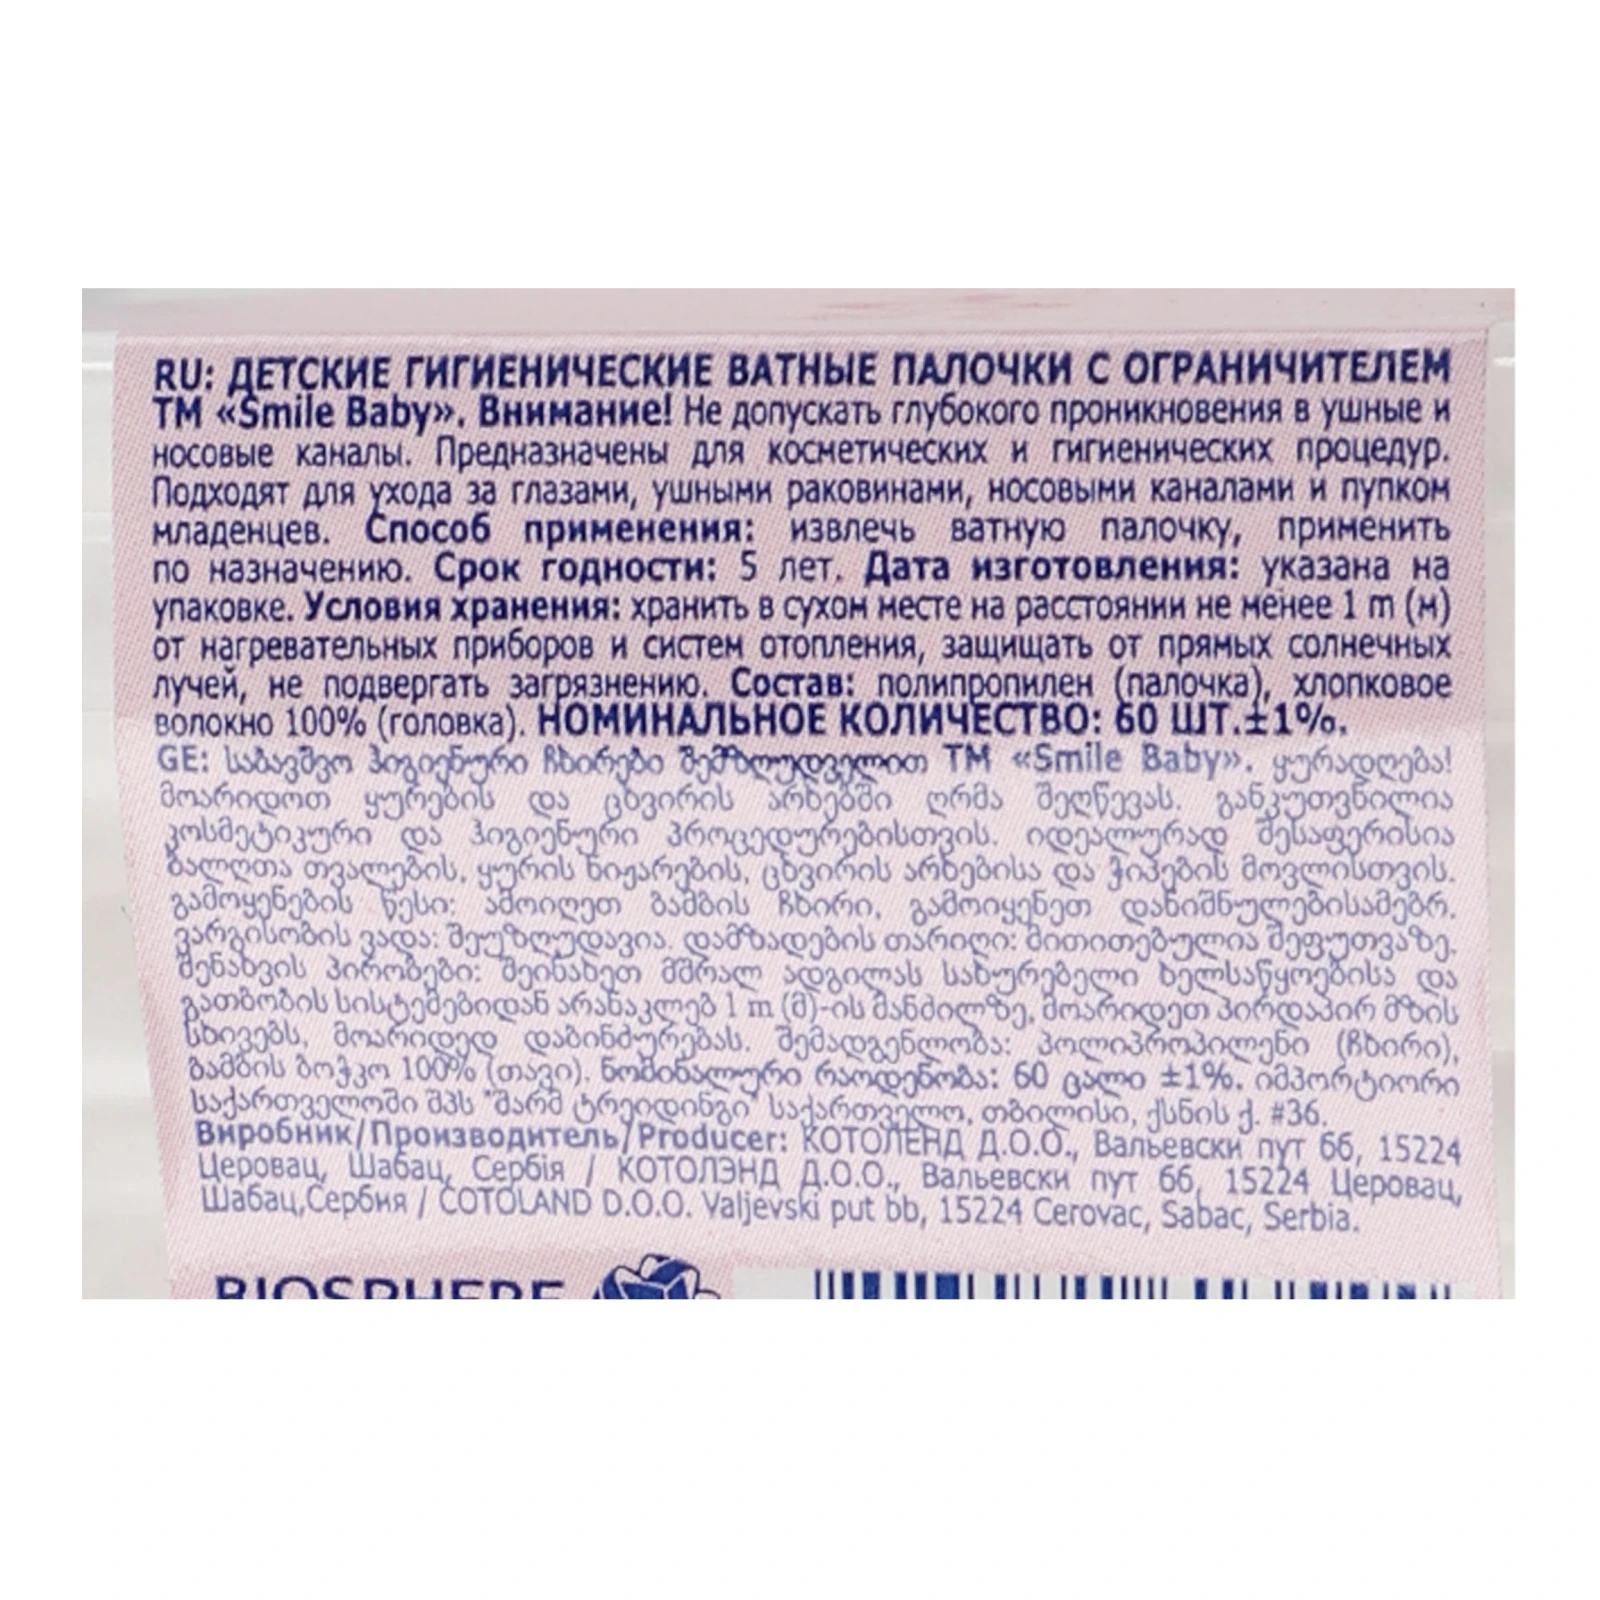 RU: ДЕТСКИЕ ГИГИЕНИЧЕСКИЕ ВАТНЫЕ ПАЛОЧКИ С ОГРАНИЧИТЕЛЕМ
ТМ «Smile Baby». Внимание! Не допускать глубокого проникновения в ушные и
носовые каналы. Предназначены для косметических и гигиенических процедур.
Подходят для ухода за глазами, ушными раковинами, носовыми каналами и пупком
младенцев. Способ применения: извлечь ватную палочку, применить
по назначению. Срок годности: 5 лет. Дата изготовления: указана на
упаковке. Условия хранения: хранить в сухом месте на расстоянии не менее 1 m (м)
от нагревательных приборов и систем отопления, защищать от прямых солнечных
лучей, не подвергать загрязнению. Состав: полипропилен (палочка), хлопковое
волокно 100% (головка). НОМИНАЛЬНОЕ КОЛИЧЕСТВО: 60 ШТ.±1%.
GE: საბავშვო ჰიგიენური ჩხირები შემზღუდველით TM «Smile Baby». ყურადღება!
მოარიდოთ ყურების და ცხვირის არხებში ღრმა შეღწევას. განკუთვნილია
კოსმეტიკური და ჰიგიენური პროცედურებისთვის. იდეალურად შესაფერისია
ბალღთა თვალების, ყურის ნიჟარების, ცხვირის არხებისა და ჭიპების მოვლისთვის.
გამოყენების წესი: ამოიღეთ ბამბის ჩხირი, გამოიყენეთ დანიშნულებისამებრ.
ვარგისობის ვადა: შეუზღუდავია. დამზადების თარიღი: მითითებულია შეფუთვაზე.
შენახვის პირობები: შეინახეთ მშრალ ადგილას სახურებელი ხელსაწყოებისა და
გათბობის სისტემებიდან არანაკლებ 1 m (მ)-ის მანძილზე, მოარიდეთ პირდაპირ მზის
სხივებს, მოარიდედ დაბინძურებას. შემადგენლობა: პოლიპროპილენი (ჩხირი),
ბამბის ბოჭკო 100% (თავი). ნომინალური რაოდენობა: 60 ცალი ±1%. იმპორტიორი
საქართველოში შპს "მარშ ტრეიდინგი" საქართველო, თბილისი, ქსნის ქ. #36.
Виробник/Производитель/Producer: КОТОЛЕНД Д.О.О., Вальевски пут бб, 15224
Церовац, Шабац, Сербія / КОТОЛЭНД Д.О.О., Вальевски пут бб, 15224 Церовац,
Шабац,Сербия / COTOLAND D.O.O. Valjevski put bb, 15224 Cerovac, Sabac, Serbia.
BIOSPHERE